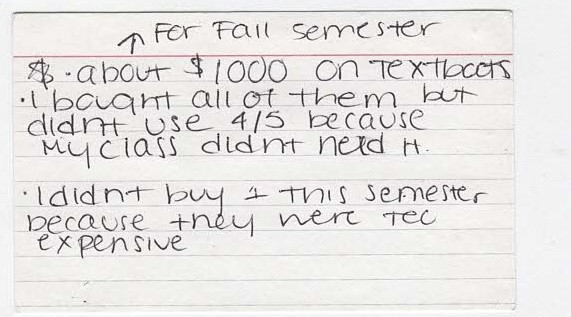 ↑ For Fall semester
$ · about $1000 on Textbooks
· I bought all of them but
didnt use 4/5 because
My class didnt need it.
· I didnt buy 1 this semester
because they were too
expensive